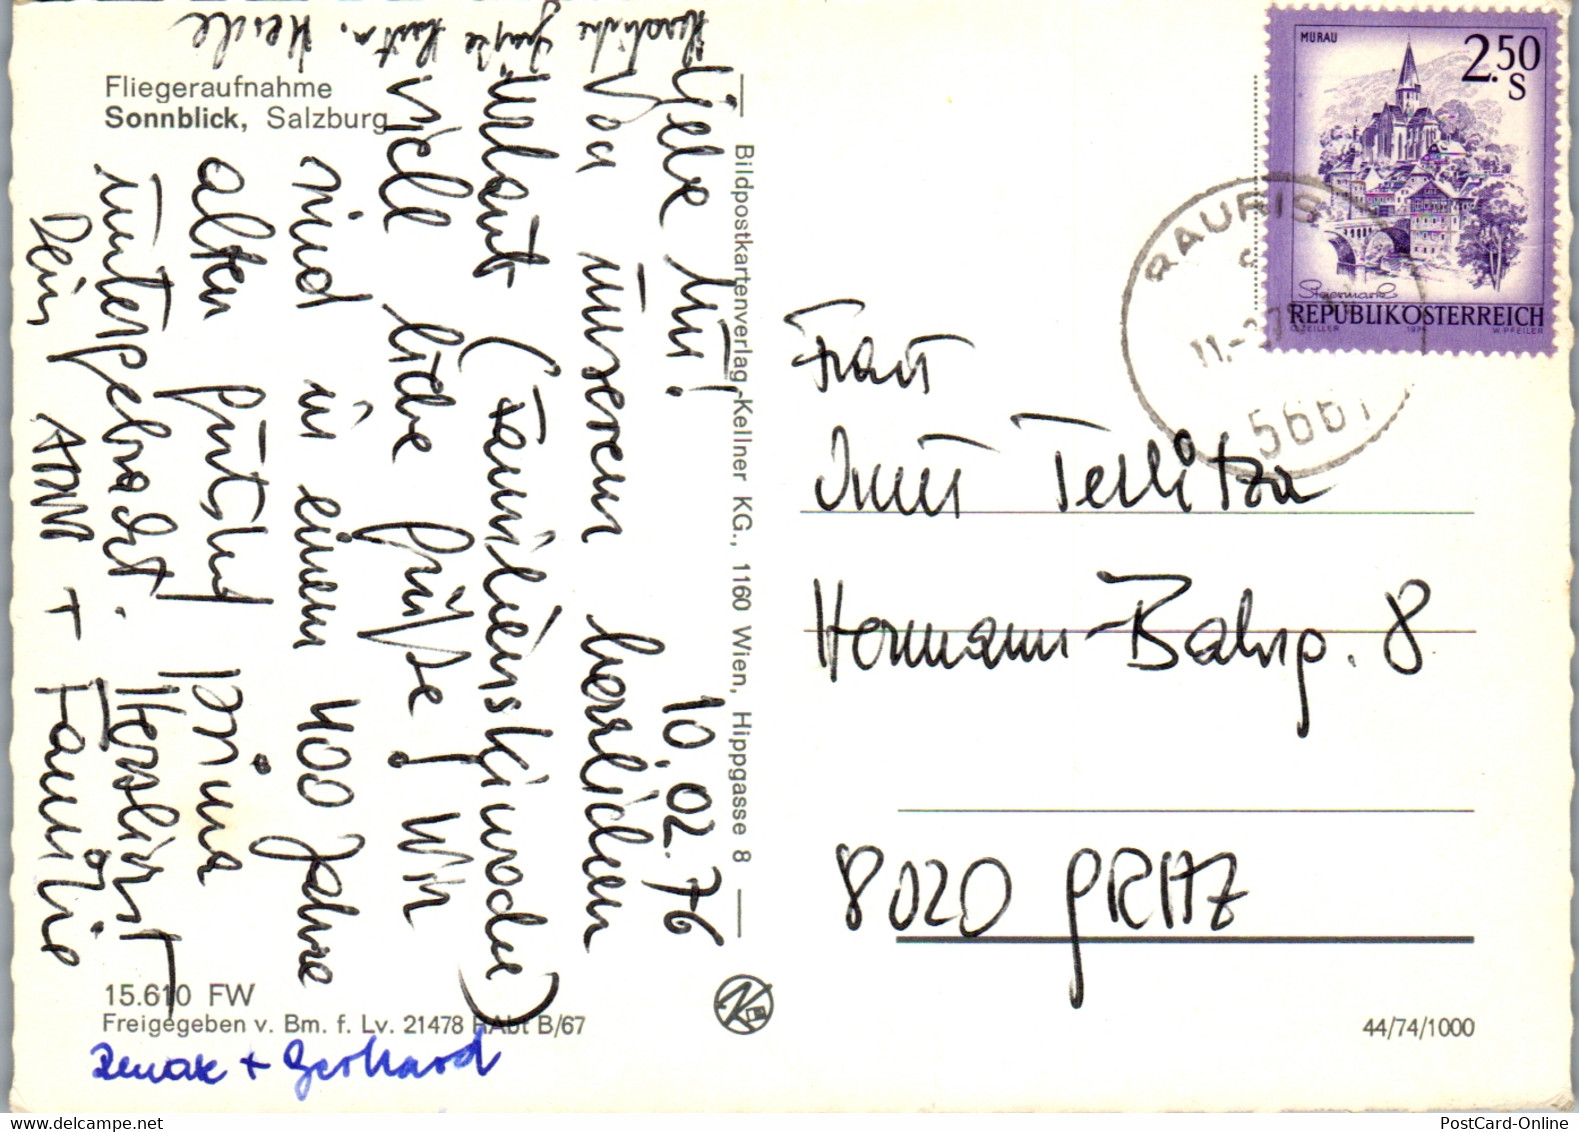 Fliegeraufnahme
Sonnblick, Salzburg
Herzliche Grüße Heide
10.02.76
Liebe Mui!
Von unserem herrlichen
Urlaub (Familienskirunde)
viell liebe Grüße! Wir
sind in einem 400 Jahre
alten Gutshof prima
untergebracht. Herzlichst
Dein ADI + Familie
Renate + Gerhard
15.610 FW
Freigegeben v. Bm. f. Lv. 21478 RAbt B/67
Bildpostkartenverlag Kellner KG., 1160 Wien, Hippgasse 8
MURAU
2.50
S
Steiermark
REPUBLIK ÖSTERREICH
W. PFEILER
RAURIS
5661
Frau
Terlitza
Hermann-Bahrg. 8
8020 GRAZ
44/74/1000
PostCard-Online